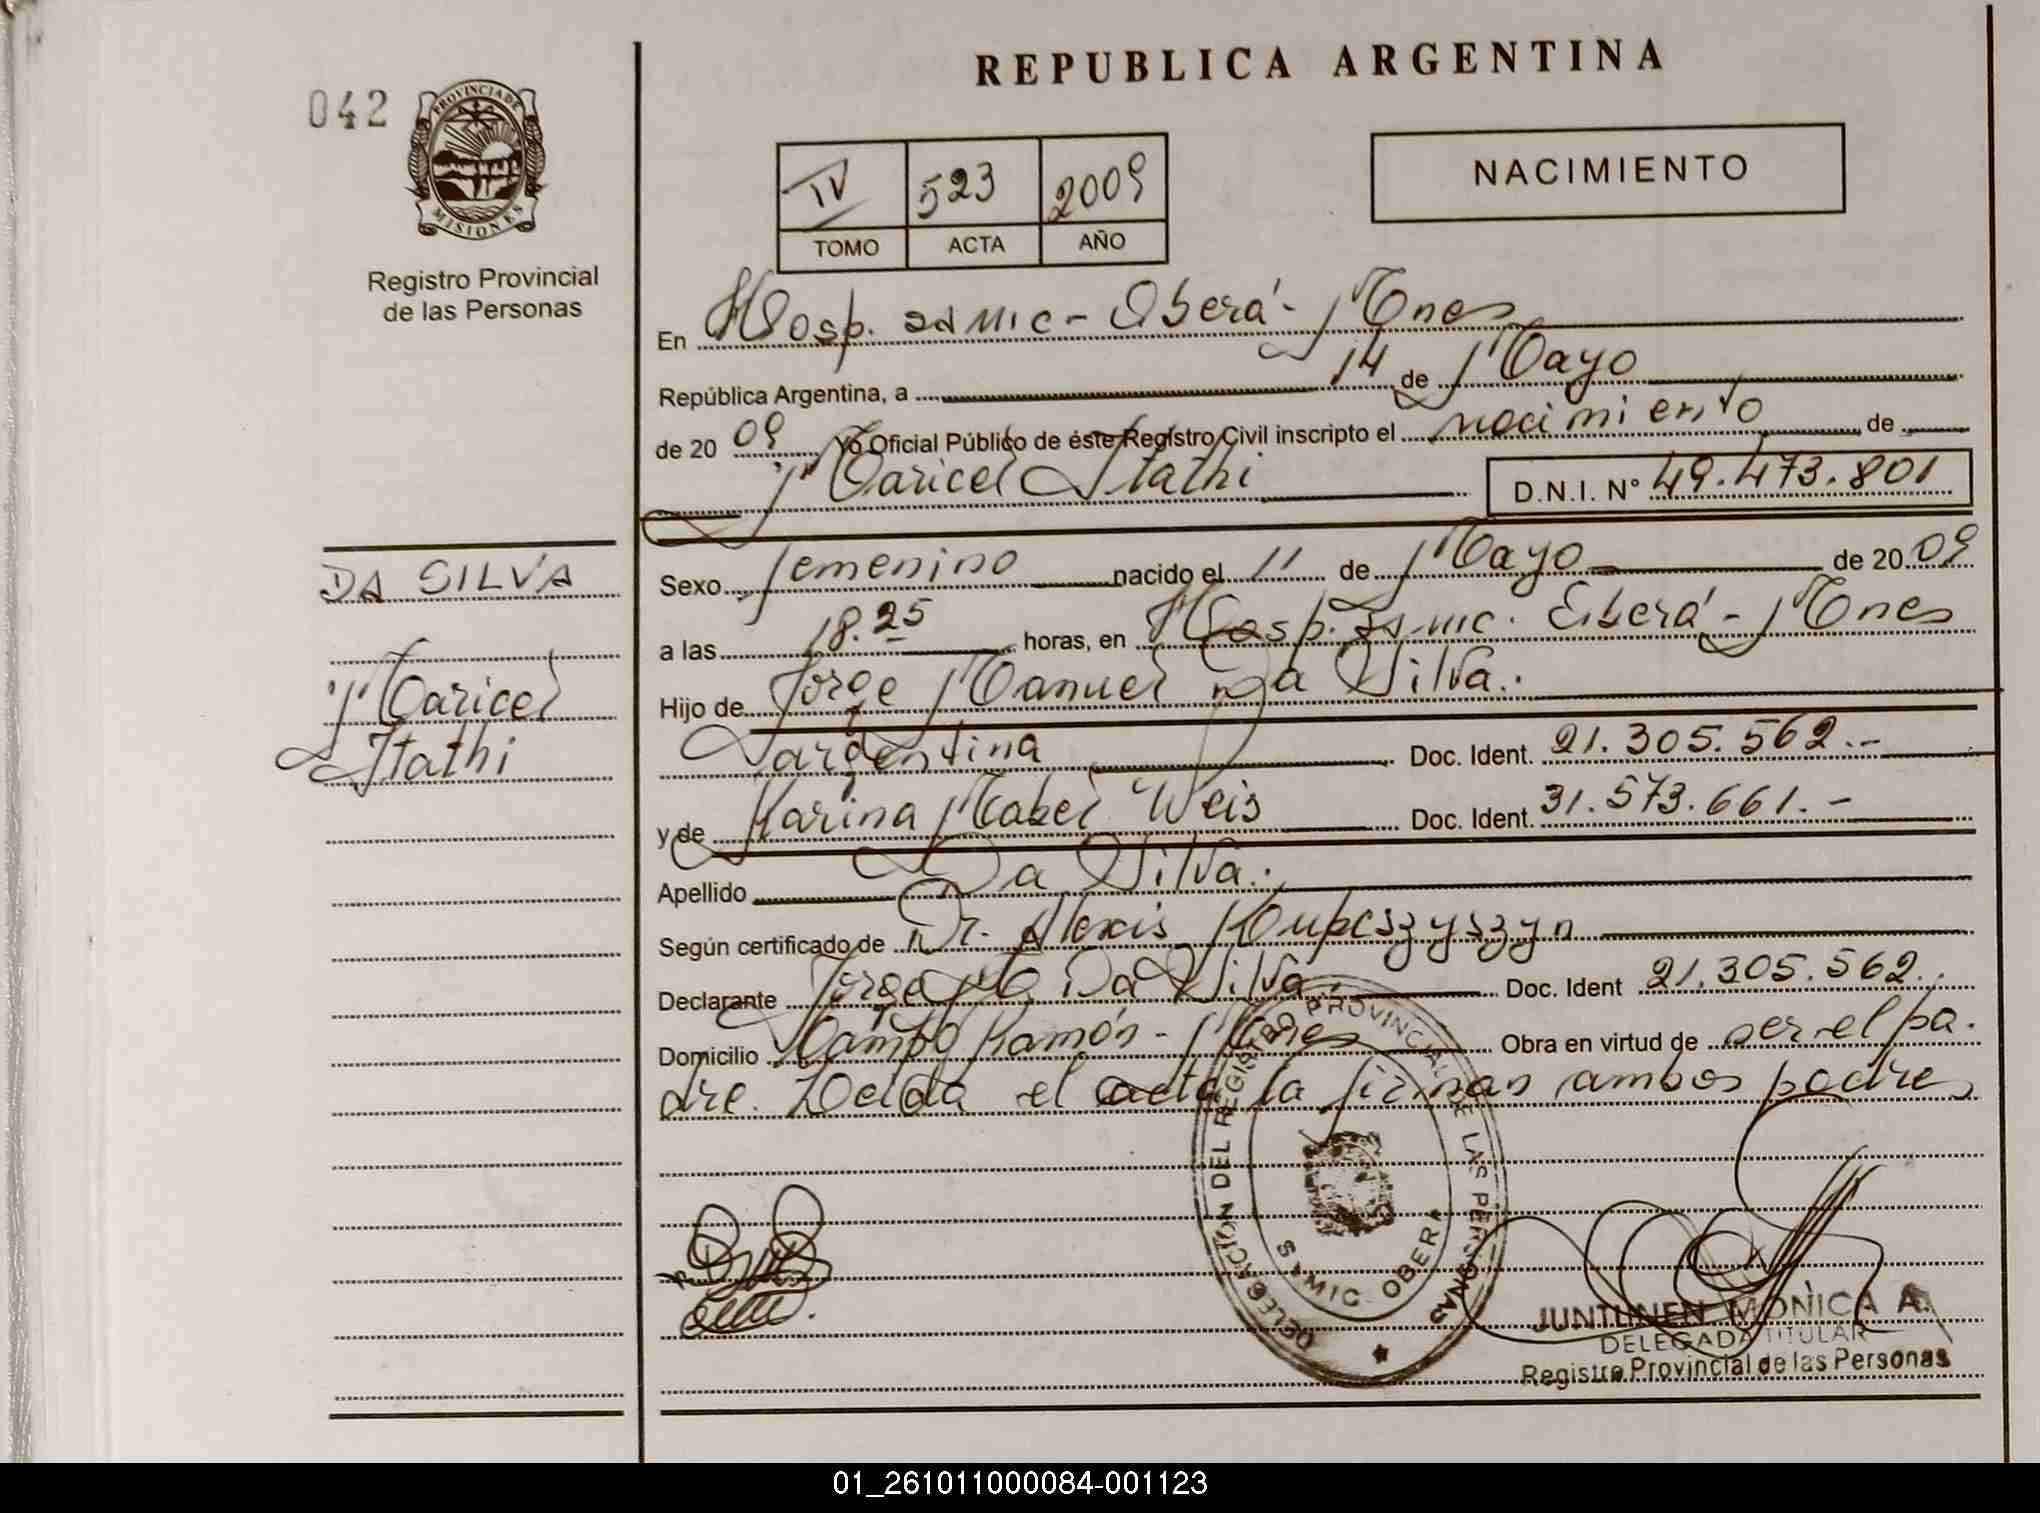 REPUBLICA ARGENTINA
042
PROVINCIA DE
MISIONES
Registro Provincial
de las Personas
IV 523 2009
TOMO ACTA AÑO
NACIMIENTO
En Hosp. samic - Oberá - Mnes
República Argentina, a 14 de Mayo
de 20 09 Yo Oficial Público de éste Registro Civil inscripto el nacimiento de
Maricel Itathi D.N.I. Nº 49.473.801
DA SILVA
Maricel
Itathi
Sexo femenino nacido el 11 de Mayo de 20 09
a las 18.25 horas, en Hosp. samic. Oberá - Mnes
Hijo de Jorge Manuel Da Silva.
argentina Doc. Ident. 21.305.562.-
y de Karina Mabel Weis Doc. Ident. 31.573.661.-
Apellido Da Silva.
Según certificado de Dr. Alexis Kupeszyszyn
Declarante Jorge M. Da Silva. Doc. Ident 21.305.562.
Domicilio Campo Ramón - Mnes Obra en virtud de ser el pa.
dre. Leída el acta la firman ambos padres
DELEGACIÓN DEL REGISTRO PROVINCIAL DE LAS PERSONAS
SAMIC OBERA
JUNTUNEN MÓNICA A.
DELEGADA TITULAR
Registro Provincial de las Personas
01_261011000084-001123